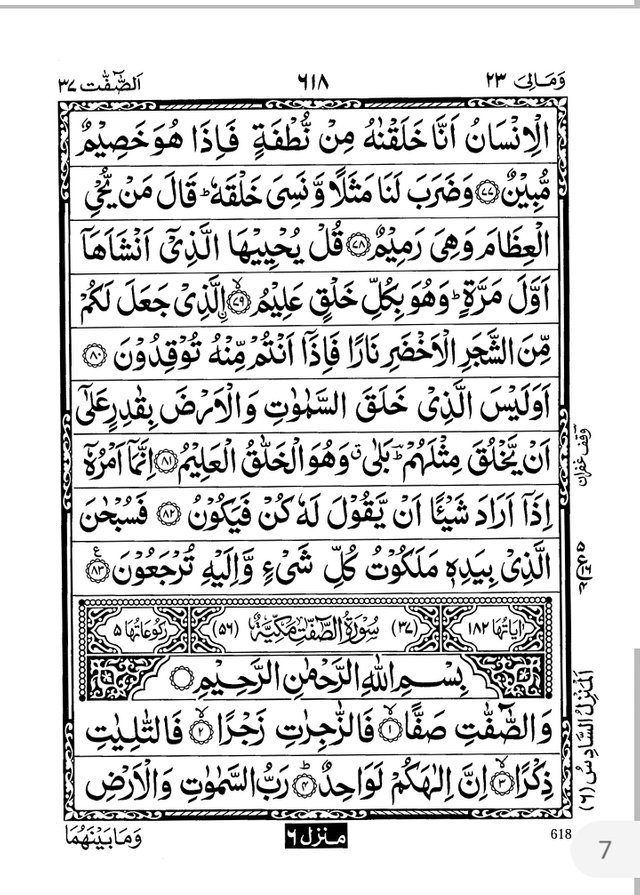 وَمَالِیَ ٢٣ ٦١٨ اَلصّٰٓفّٰت ٣٧
الْاِنْسَانُ اَنَّا خَلَقْنٰهُ مِنْ نُّطْفَةٍ فَاِذَا هُوَ خَصِیْمٌ
مُّبِیْنٌ ﴿٧٧﴾ وَضَرَبَ لَنَا مَثَلًا وَّنَسِیَ خَلْقَهٗ ؕ قَالَ مَنْ یُّحْیِ
الْعِظَامَ وَهِیَ رَمِیْمٌ ﴿٧٨﴾ قُلْ یُحْیِیْهَا الَّذِیْۤ اَنْشَاَهَاۤ
اَوَّلَ مَرَّةٍ ؕ وَهُوَ بِكُلِّ خَلْقٍ عَلِیْمُ ۙ﴿٧٩﴾ اۨلَّذِیْ جَعَلَ لَكُمْ
مِّنَ الشَّجَرِ الْاَخْضَرِ نَارًا فَاِذَاۤ اَنْتُمْ مِّنْهُ تُوْقِدُوْنَ ﴿٨٠﴾
اَوَلَیْسَ الَّذِیْ خَلَقَ السَّمٰوٰتِ وَالْاَرْضَ بِقٰدِرٍ عَلٰۤی
اَنْ یَّخْلُقَ مِثْلَهُمْ ؕ بَلٰی ۗ وَهُوَ الْخَلّٰقُ الْعَلِیْمُ ﴿٨١﴾ اِنَّمَاۤ اَمْرُهٗۤ
وقف غفران
اِذَاۤ اَرَادَ شَیْـًٔا اَنْ یَّقُوْلَ لَهٗ كُنْ فَیَكُوْنُ ﴿٨٢﴾ فَسُبْحٰنَ
الَّذِیْ بِیَدِهٖ مَلَكُوْتُ كُلِّ شَیْءٍ وَّاِلَیْهِ تُرْجَعُوْنَ ﴿٨٣﴾
اٰیَاتُهَا ١٨٢ (٣٧) سُوْرَةُ الصّٰٓفّٰتِ مَكِّیَّةٌ (٥٦) رُكُوْعَاتُهَا ٥
بِسْمِ اللّٰهِ الرَّحْمٰنِ الرَّحِیْمِ
وَالصّٰٓفّٰتِ صَفًّا ۙ﴿١﴾ فَالزّٰجِرٰتِ زَجْرًا ۙ﴿٢﴾ فَالتّٰلِیٰتِ
ذِكْرًا ۙ﴿٣﴾ اِنَّ اِلٰهَكُمْ لَوَاحِدٌ ؕ﴿٤﴾ رَبُّ السَّمٰوٰتِ وَالْاَرْضِ
اَلْمَنْزِلُ السَّادِسُ (٦)
618 منزل ٦ وَمَا بَیْنَهُمَا
7